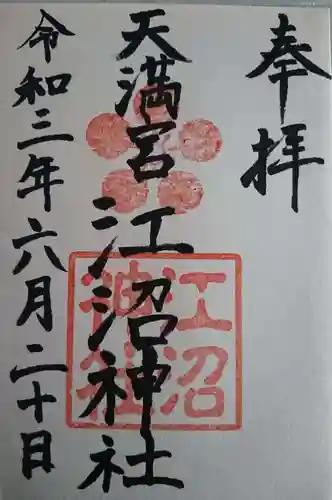 奉拝
天満宮
江沼神社
令和三年六月二十日
江沼
神社